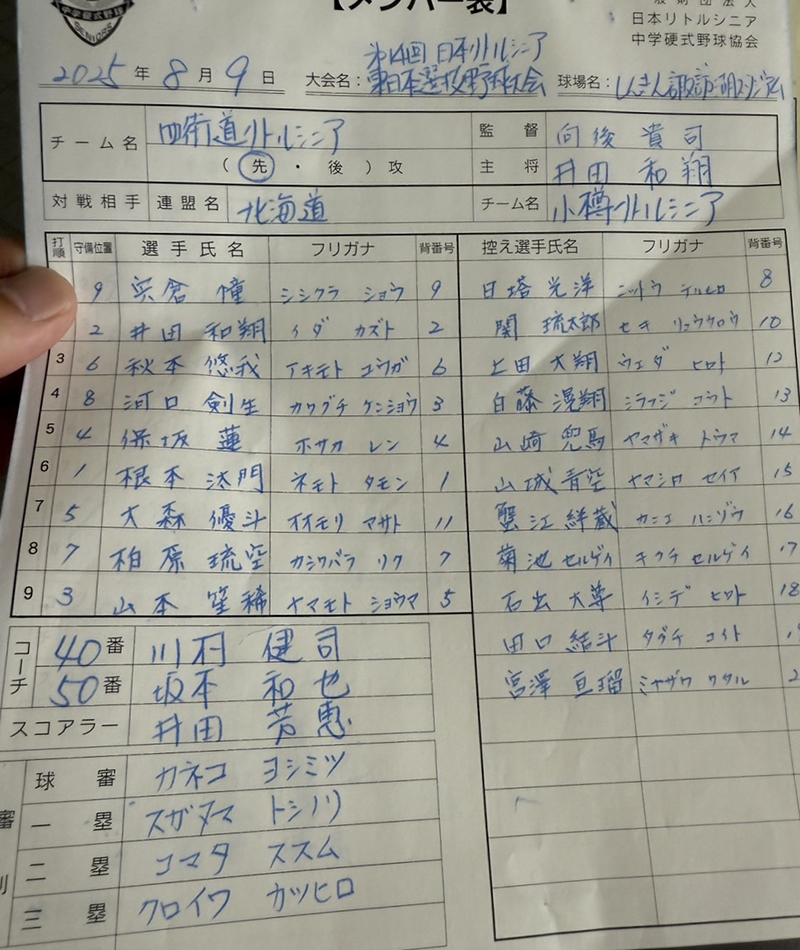 【メンバー表】
中学硬式野球
SENIORS
一般財団法人
日本リトルシニア
中学硬式野球協会
2025年 8月 9日 大会名: 第14回 日本リトルシニア 東日本選抜野球大会 球場名: しんきん諏訪湖スタジアム
チーム名 四街道リトルシニア 監督 向後 貴司
(先・後)攻 主将 井田 和翔
対戦相手 連盟名 北海道 チーム名 小樽リトルシニア
打順 守備位置 選手氏名 フリガナ 背番号 控え選手氏名 フリガナ 背番号
9 宍倉 憧 シシクラ ショウ 9 日塔 光洋 ニットウ テルヒロ 8
2 井田 和翔 イダ カズト 2 関 琉太郎 セキ リュウタロウ 10
3 6 秋本 悠我 アキモト ユウガ 6 上田 大翔 ウエダ ヒロト 12
4 8 河口 剣生 カワグチ ケンショウ 3 白藤 滉翔 シラフジ コウト 13
5 4 保坂 蓮 ホサカ レン 4 山崎 兜馬 ヤマザキ トウマ 14
6 1 根本 汰門 ネモト タモン 1 山城 青空 ヤマシロ セイア 15
7 5 大森 優斗 オオモリ マサト 11 蟹江 絆蔵 カニエ ハンゾウ 16
8 7 柏原 琉空 カシワバラ リク 7 菊池 セルゲイ キクチ セルゲイ 17
9 3 山本 笙稀 ヤマモト ショウマ 5 石出 大尊 イシデ ヒロト 18
田口 結斗 タグチ ユイト
宮澤 亘瑠 ミヤザワ ワタル
コーチ 40番 川村 健司
50番 坂本 和也
スコアラー 井田 芳恵
球審 カネコ ヨシミツ
一塁 スガヌマ トシノリ
二塁 コマタ ススム
三塁 クロイワ カツヒロ